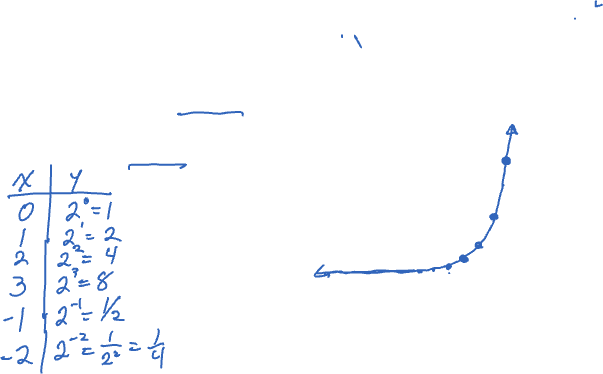 x y
0 2⁰=1
1 2¹=2
2 2²=4
3 2³=8
-1 2⁻¹=1/2
-2 2⁻²=1/2²=1/4